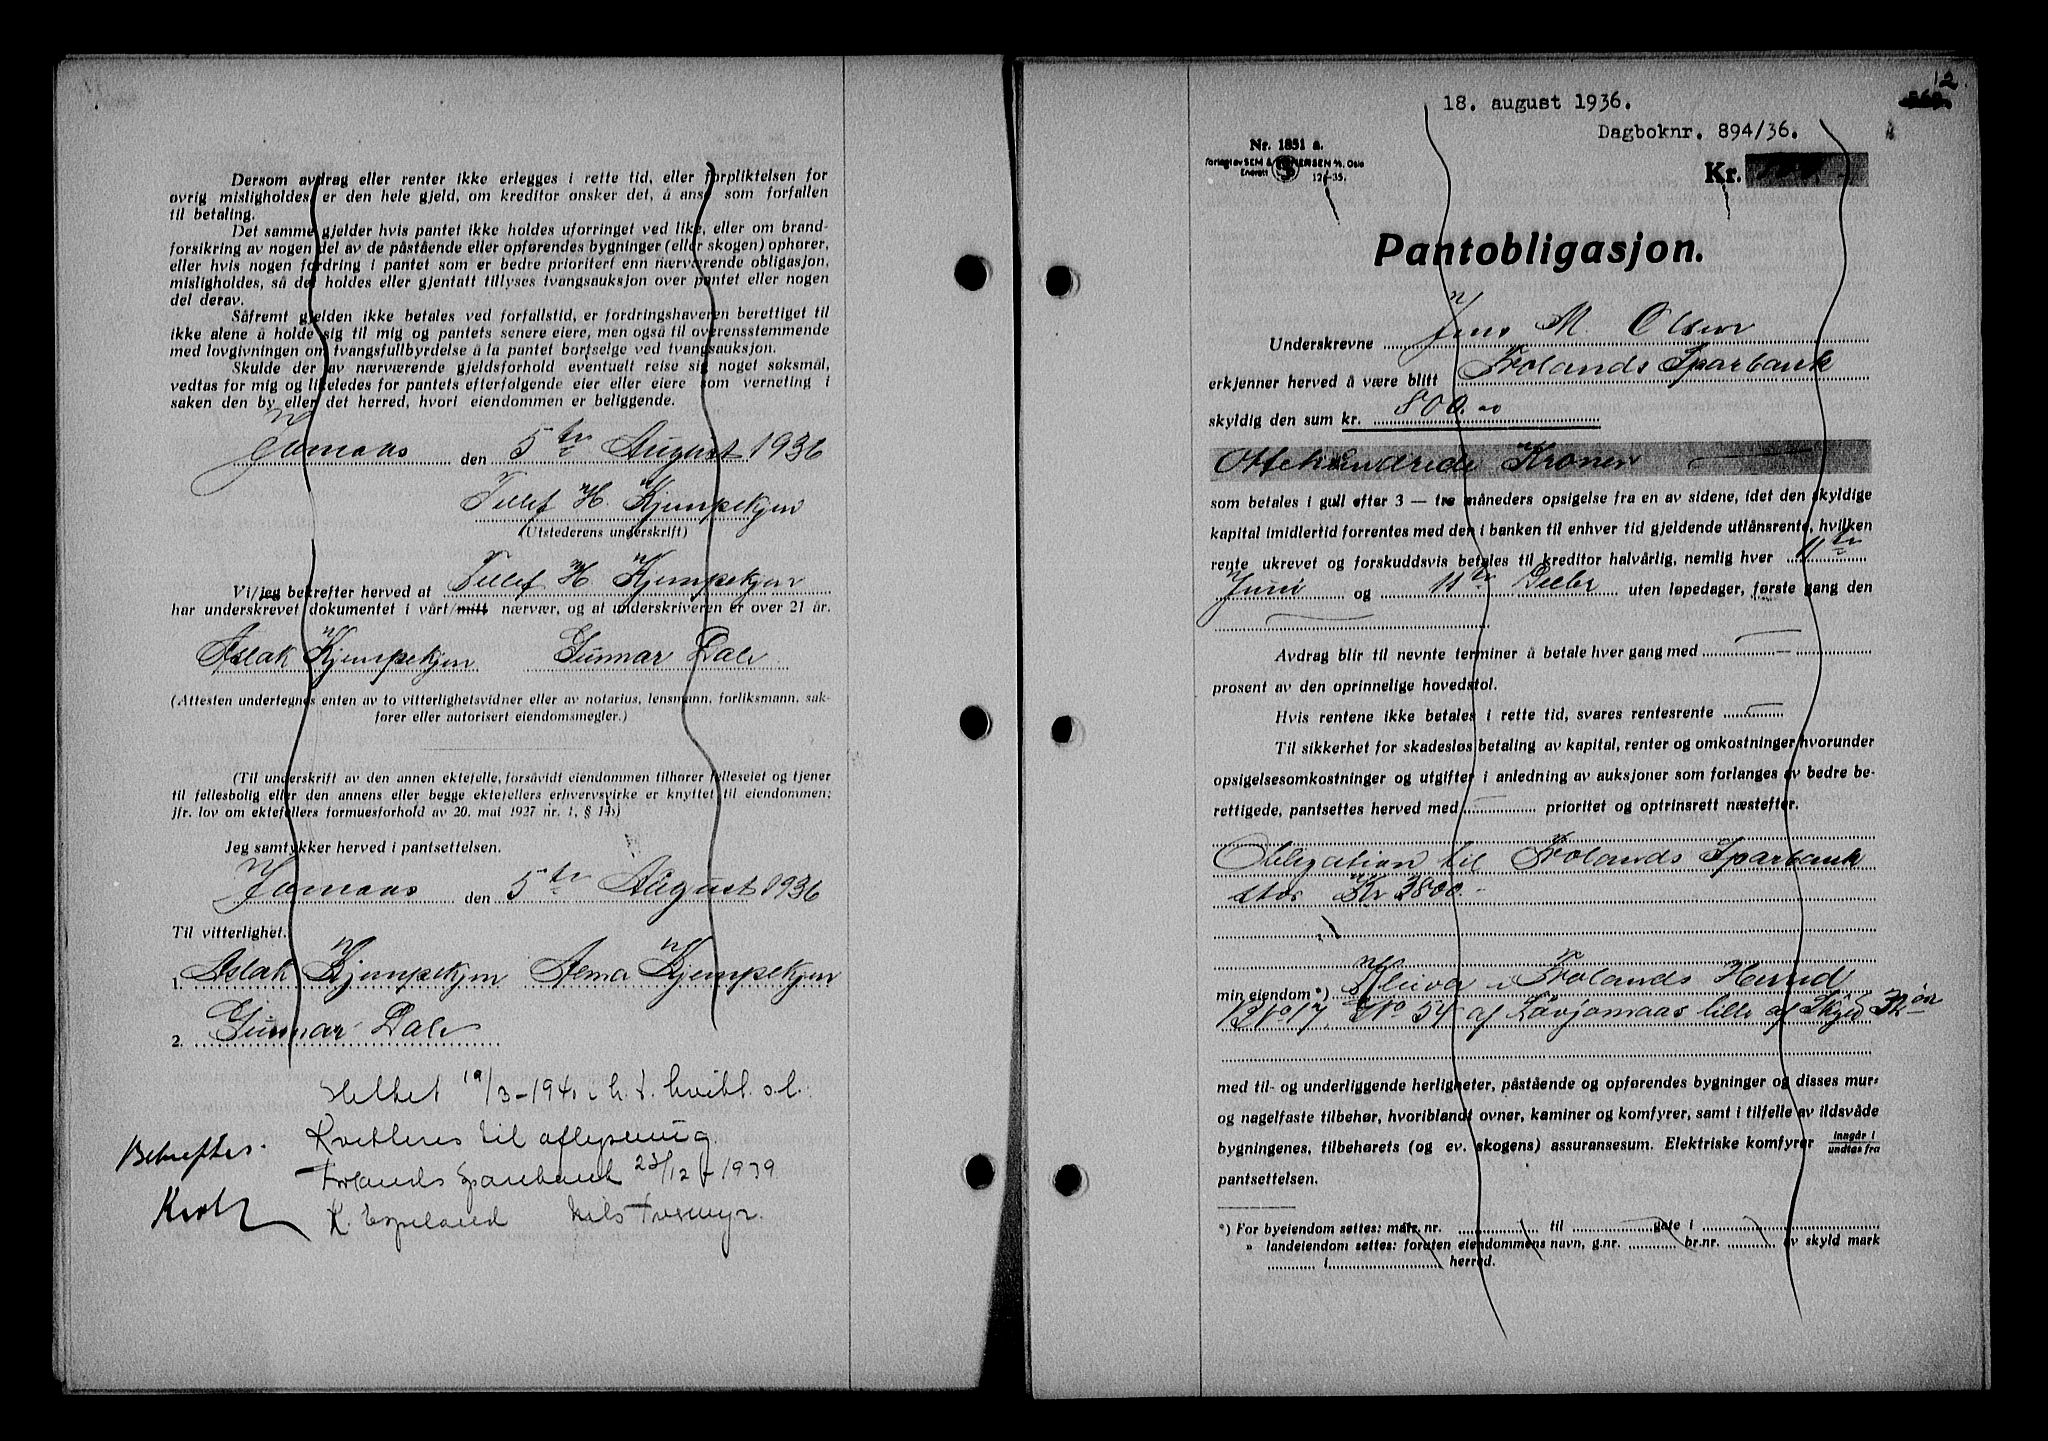 Dersom avdrag eller renter ikke erlegges i rette tid, eller forpliktelsen for
øvrig misligholdes, er den hele gjeld, om kreditor ønsker det, å anse som forfallen
til betaling.
Det samme gjelder hvis pantet ikke holdes uforringet ved like, eller om brand-
forsikring av nogen del av de påstående eller opførendes bygninger (eller skogen) ophører,
eller hvis nogen fordring i pantet som er bedre prioritert enn nærværende obligasjon,
misligholdes, så det holdes eller gjentatt tillyses tvangsauksjon over pantet eller nogen
del derav.
Såfremt gjelden ikke betales ved forfallstid, er fordringshaveren berettiget til
ikke alene å holde sig til mig og pantets senere eiere, men også til overensstemmende
med lovgivningen om tvangsfullbyrdelse å la pantet bortselge ved tvangsauksjon.
Skulde der av nærværende gjeldsforhold eventuelt reise sig noget søksmål,
vedtas for mig og likeledes for pantets efterfølgende eier eller eiere som verneting i
saken den by eller det herred, hvori eiendommen er beliggende.
Jomaas den 5te August 1936
Tellef H. Kjempekjen
(Utstederens underskrift)
Vi/jeg bekrefter herved at Tellef H Kjempekjen
har underskrevet dokumentet i vårt/mitt nærvær, og at underskriveren er over 21 år.
Aslak Kjempekjen Gunnar Dale
(Attesten undertegnes enten av to vitterlighetsvidner eller av notarius, lensmann, forliksmann, sak-
fører eller autorisert eiendomsmegler.)
(Til underskrift av den annen ektefelle, forsåvidt eiendommen tilhører felleseiet og tjener
til fellesbolig eller den annens eller begge ektefellers erhvervsvirke er knyttet til eiendommen;
jfr. lov om ektefellers formuesforhold av 20. mai 1927 nr. 1, § 14.)
Jeg samtykker herved i pantsettelsen.
Jomaas den 5te August 1936
Til vitterlighet.
1. Aslak Kjempekjen Alma Kjempekjen
2. Gunnar Dale
Slettet 19/3-1940 i h. t. kvitt. s.l.
Kvitteres til aflysning
Bekreftes
Frolands Sparebank 23/12 1939
K. Espeland Nils
12
18. august 1936.
Dagboknr. 894/36.
Nr. 1851 a.
Forlagt av SEM & STENERSEN A/S, Oslo
Enerett 12-35.
Kr.
Pantobligasjon.
Underskrevne Jens M. Olsen
erkjenner herved å være blitt Frolands Sparbank
skyldig den sum kr. 800.00
Ottehundrede Kroner
som betales i gull efter 3 — tre måneders opsigelse fra en av sidene, idet den skyldige
kapital imidlertid forrentes med den i banken til enhver tid gjeldende utlånsrente, hvilken
rente ukrevet og forskuddsvis betales til kreditor halvårlig, nemlig hver 11te
Juni og 11te Decbr uten løpedager, første gang den
Avdrag blir til nevnte terminer å betale hver gang med —
prosent av den oprinnelige hovedstol.
Hvis rentene ikke betales i rette tid, svares rentesrente
Til sikkerhet for skadesløs betaling av kapital, renter og omkostninger hvorunder
opsigelsesomkostninger og utgifter i anledning av auksjoner som forlanges av bedre be-
rettigede, pantsettes herved med prioritet og optrinsrett næstefter.
Obligation til Frolands Sparbank
stor Kr 3800.-
min eiendom *) Kleiva i Frolands Herred
BNo 17, GNo 54 af Løvjomaas lille af Skyld 32 øre
med til- og underliggende herligheter, påstående og opførendes bygninger og disses mur-
og nagelfaste tilbehør, hvoriblandt ovner, kaminer og komfyrer, samt i tilfelle av ildsvåde
bygningenes, tilbehørets (og ev. skogens) assuransesum. Elektriske komfyrer inngår i / undtas fra
pantsettelsen.
*) For byeiendom settes: matr. nr. til gate i
» landeiendom settes: foruten eiendommens navn, g.nr. br.nr. av skyld mark
i herred.